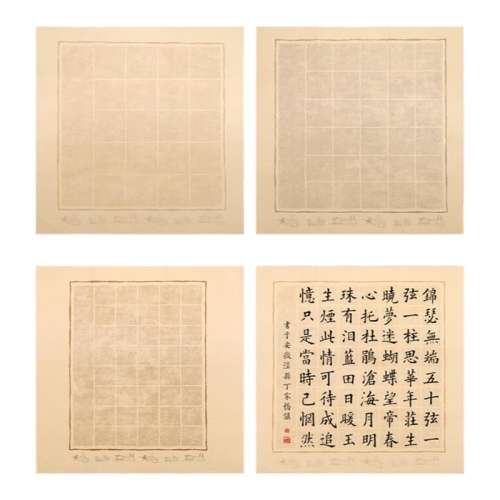 錦瑟無端五十弦一
弦一柱思華年莊生
曉夢迷蝴蝶望帝春
心托杜鵑滄海月明
珠有泪藍田日暖玉
生煙此情可待成追
憶只是當時已惘然
書于安徽涇縣丁家橋鎮